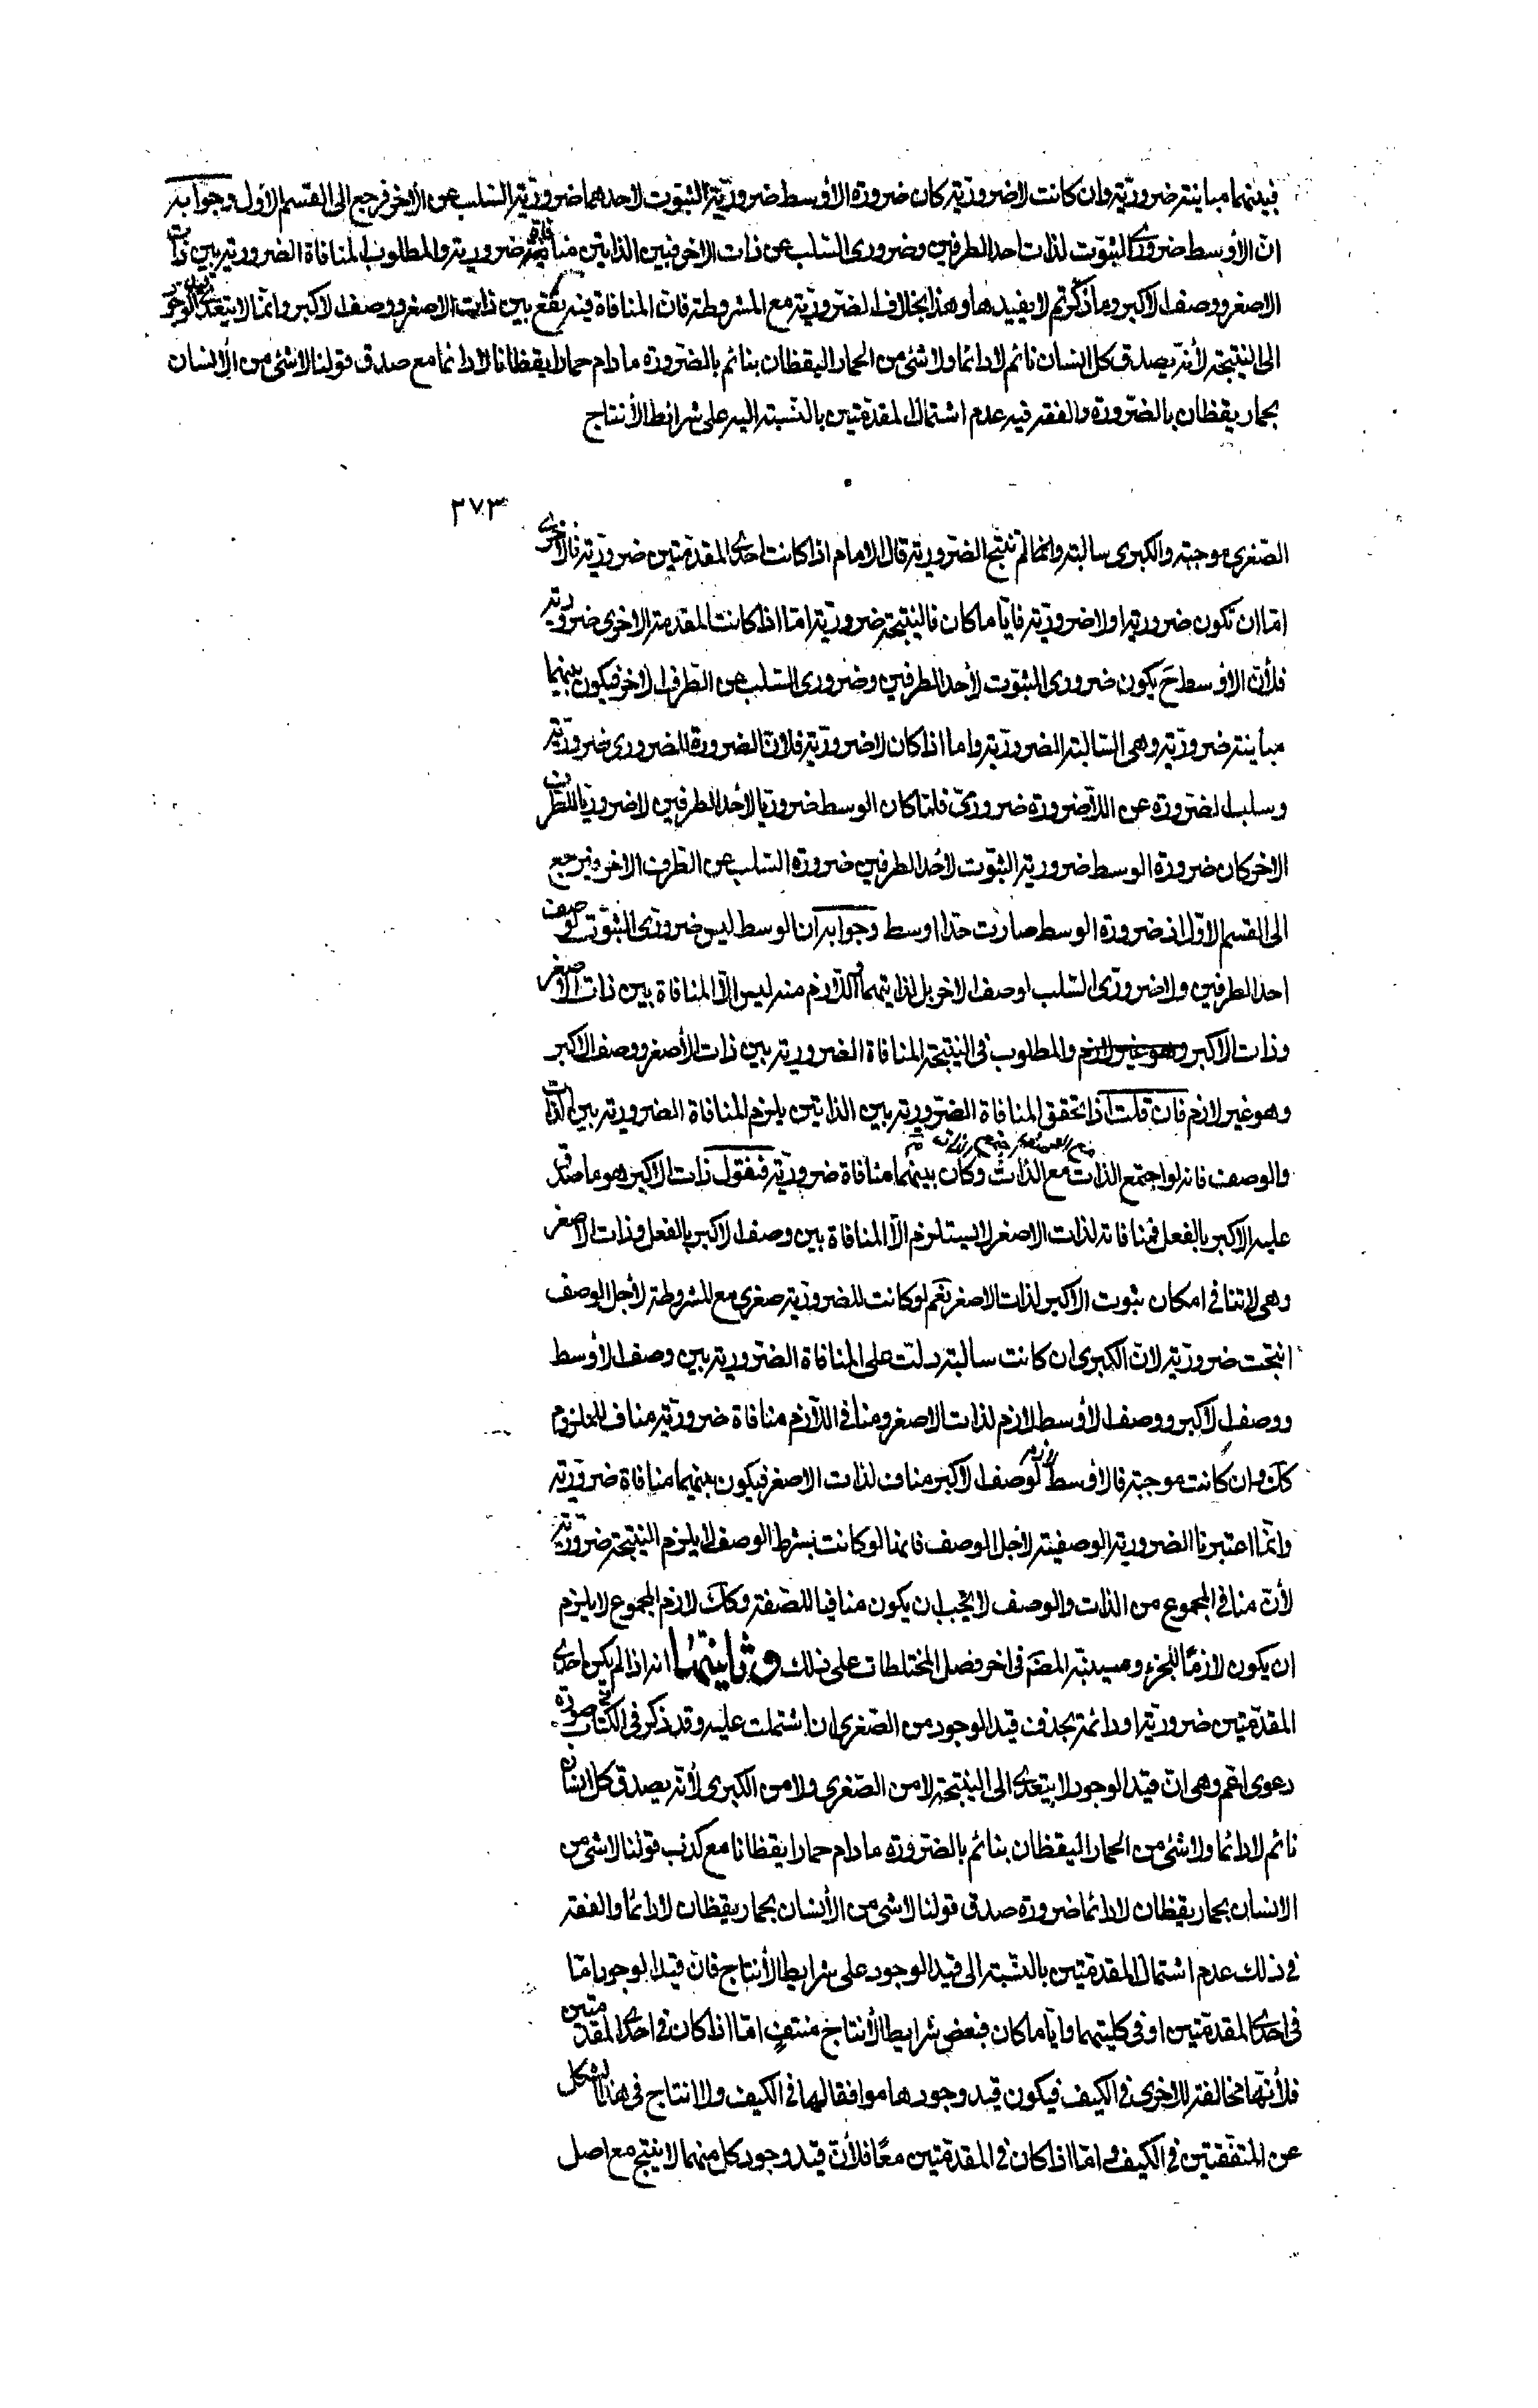 فبينهما مباينة ضرورية وان كانت لاضرورية كان ضرورة الأوسط ضرورية الثبوت لاحدهما ضرورية السلب عن الاخر فرجع الى القسم الاول وجوابه
ان الأوسط ضرورى الثبوت لذات احد الطرفين وضرورى السلب عن ذات الاخر فبين الذاتين منافاة ضرورية والمطلوب المنافاة الضرورية بين ذات
الاصغر ووصف الاكبر وما ذكرتم لا يفيدها وهذا بخلاف الضرورية مع المشروطة فان المنافاة فيه يقع بين ذات الاصغر ووصف الاكبر وانما لا يتعدى الوجود
الى النتيجة لأنه يصدق كل انسان نائم لا دائما ولا شئ من الحمار اليقظان بنائم بالضرورة ما دام حمارا يقظانا لا دائما مع صدق قولنا لا شئ من الانسان
بحمار يقظان بالضرورة والفقه فيه عدم اشتمال المقدمتين بالنسبة اليه على شرائط الأنتاج
٢٧٣
الصغرى موجبة والكبرى سالبة وانما لم تنتج الضرورية قال الامام اذا كانت احدى المقدمتين ضرورية فالاخرى
اما ان تكون ضرورية او لا ضرورية فايا ما كان فالنتيجة ضرورية اما اذا كانت المقدمة الاخرى ضرورية
فلأن الأوسط ح يكون ضرورى الثبوت لأحد الطرفين وضرورى السلب عن الطرف الاخر فيكون بينهما
مباينة ضرورية وهى السالبة الضرورية واما اذا كان لا ضرورية فلان الضرورة للضرورى ضرورية
وسلب الضرورة عن اللاضرورة ضرورىّ فلما كان الوسط ضروريا لأحد الطرفين لا ضروريا للطرف
الاخر كان ضرورة الوسط ضرورية الثبوت لأحد الطرفين ضرورة السلب عن الطرف الاخر ويرجع
الى القسم الاول اذ ضرورة الوسط صارت حدا اوسط وجوابه ان الوسط ليس ضرورى الثبوت لوصف
احد الطرفين ولا ضرورى السلب لوصف الاخر بل لذاتيهما فاللازم منه ليس الا المنافاة بين ذات الاصغر
وذات الاكبر وهو غير لازم والمطلوب فى النتيجة المنافاة الضرورية بين ذات الأصغر ووصف الاكبر
وهو غير لازم فان قلت اذا تحقق المنافاة الضرورية بين الذاتين يلزم المنافاة الضرورية بين الذات
والوصف فانه لو اجتمع الذات مع الذات وكان بينهما منافاة ضرورية فنقول ذات الاكبر هو ما صدق
عليه الاكبر بالفعل فمنافاته لذات الاصغر لا يستلزم الا المنافاة بين وصف الاكبر بالفعل وذات الاصغر
وهى لا تنافى امكان ثبوت الاكبر لذات الاصغر نعم لو كانت الضرورية صغرى مع المشروطة لأجل الوصف
انتجت ضرورية لان الكبرى ان كانت سالبة دلت على المنافاة الضرورية بين وصف الأوسط
ووصف الاكبر ووصف الأوسط لازم لذات الاصغر ومنافى اللازم منافاة ضرورية مناف للملزوم
كك وان كانت موجبة فالاوسط لوصف الاكبر مناف لذات الاصغر فيكون بينهما منافاة ضرورية
وانما اعتبرنا الضرورية الوصفية لأجل الوصف فانها لو كانت بشرط الوصف لا يلزم النتيجة ضرورية
لأن منافى المجموع من الذات والوصف لا يجب ان يكون منافيا للصفة وكك لازم المجموع لا يلزم
ان يكون لازما للجزء وسينبّه المصنف فى اخر فصل المختلطات على ذلك وثانيتهما انه اذا لم يكن احدى
المقدمتين ضرورية او دائمة يحذف قيد الوجود من الصغرى ان اشتملت عليه وقد ذكر فى الكتاب
دعوى اعم وهى ان قيد الوجود لا يتعدى الى النتيجة لا من الصغرى ولا من الكبرى لأنه يصدق كل انسان
نائم لا دائما ولا شئ من الحمار اليقظان بنائم بالضرورة ما دام حمارا يقظانا مع كذب قولنا لا شئ من
الانسان بحمار يقظان لا دائما ضرورة صدق قولنا لا شئ من الأنسان بحمار يقظان لا دائما والفقه
فى ذلك عدم اشتمال المقدمتين بالنسبة الى قيد الوجود على شرايط الأنتاج فان قيد الوجود اما
فى احدى المقدمتين او فى كليتهما وايا ما كان فبعض شرايط الأنتاج منتفٍ اما اذا كان فى احدى المقدمتين
فلأنها مخالفة للاخرى فى الكيف فيكون قيد وجودها موافقا لها فى الكيف ولا انتاج فى هذا الشكل
عن المتفقتين فى الكيف واما اذا كان فى المقدمتين معًا فلأن قيد وجود كل منهما لا ينتج مع اصل